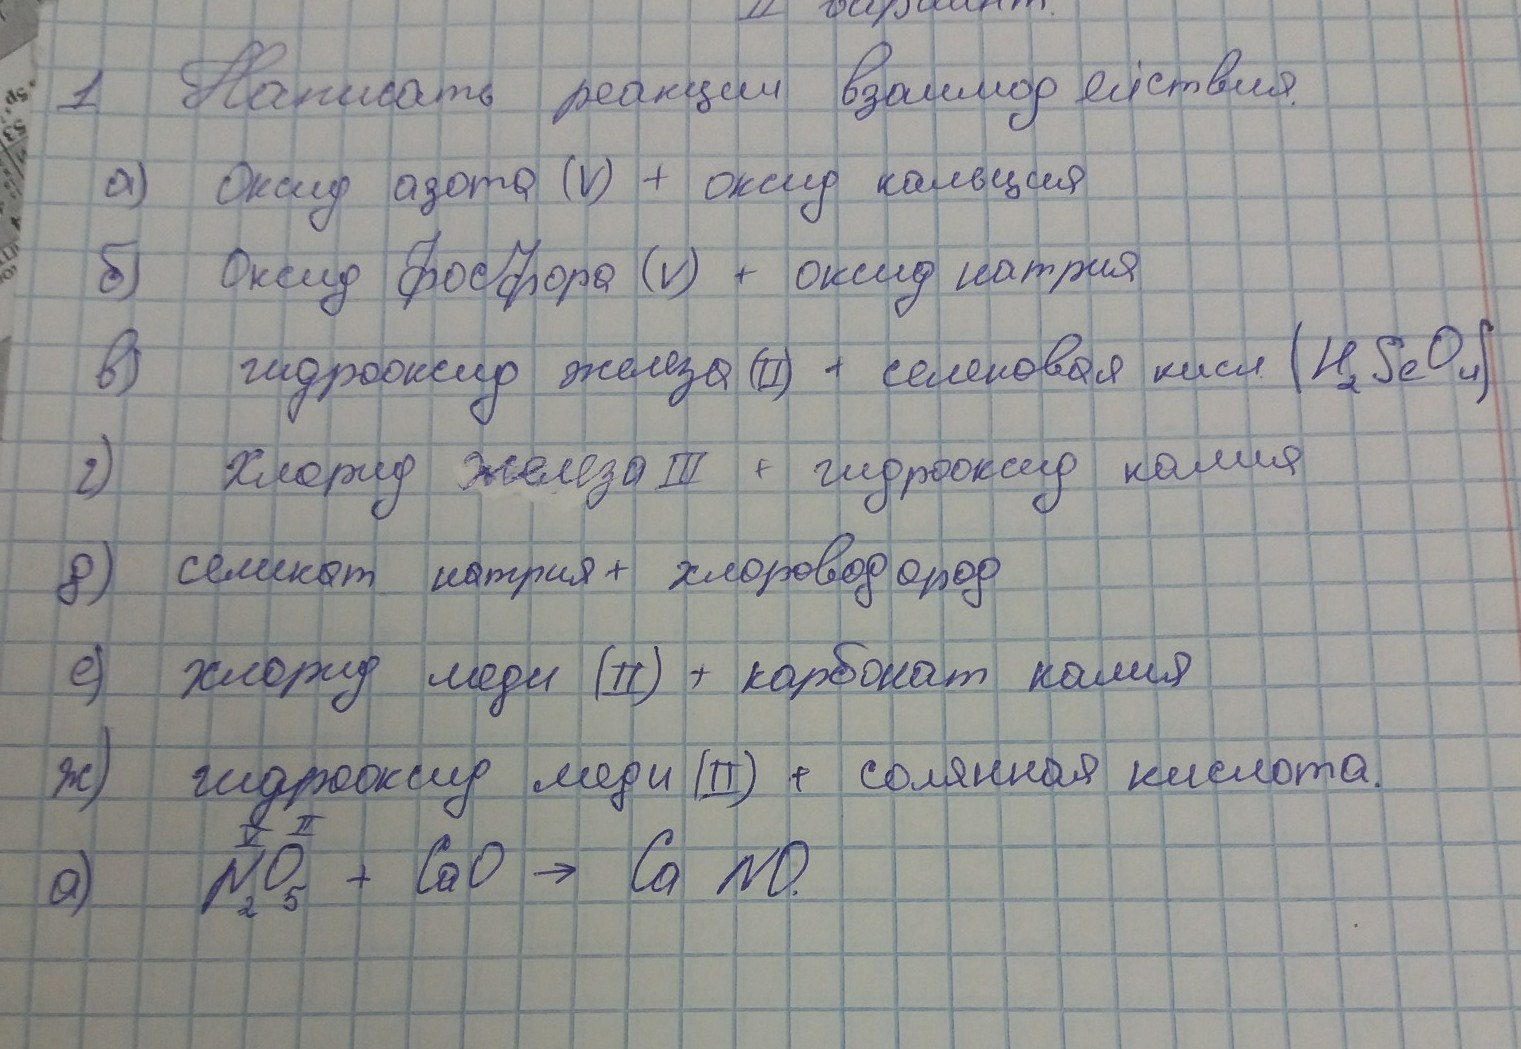 II вариант.
1 Написать реакции взаимодействия.
а) Оксид азота (V) + оксид кальция
б) Оксид фосфора (V) + оксид натрия
в) гидрооксид железа (II) + селеновая кисл. (H₂SeO₄)
г) Хлорид железа III + гидрооксид калия
д) селикат натрия + хлороводород
е) хлорид меди (II) + карбонат калия
ж) гидрооксид меди (II) + солянная кислота.
V II
а) N₂O₅ + CaO → Ca NO.